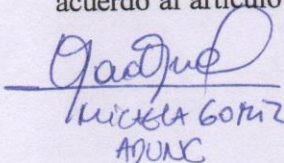 acuerdo al artículo
MICAELA GOMIZ
ADUNC